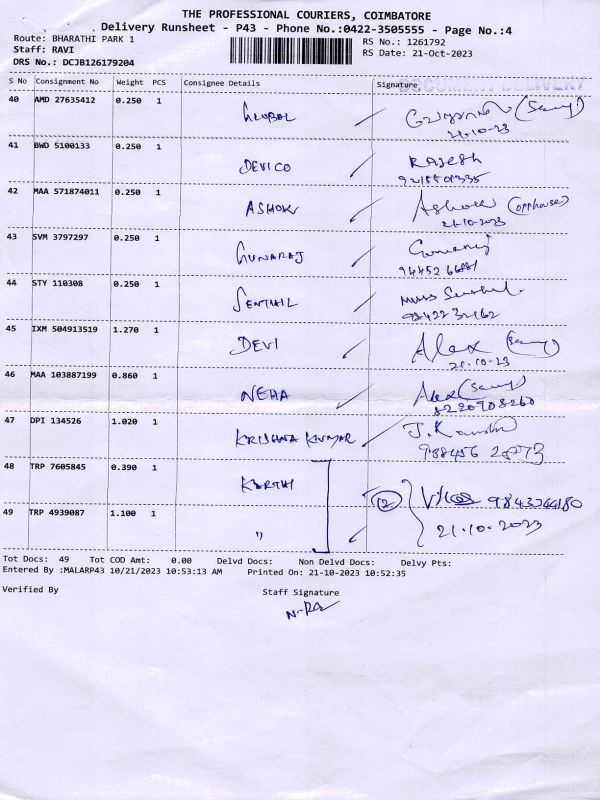 THE PROFESSIONAL COURIERS, COIMBATORE
Delivery Runsheet - P43 - Phone No.:0422-3505555 - Page No.:4
Route: BHARATHI PARK 1 RS No.: 1261792
Staff: RAVI RS Date: 21-Oct-2023
DRS No.: DCJB126179204
S No Consignment No Weight PCS Consignee Details Signature
40 AMD 27635412 0.250 1 GLOBAL
21-10-23
41 BWD 5100133 0.250 1 DEVICO RAJESH
42 MAA 571874011 0.250 1 ASHOK Ashok
21-10-2023
43 SVM 3797297 0.250 1 GUNARAJ
44 STY 110308 0.250 1 SENTHIL
45 IXM 504913519 1.270 1 DEVI Alex
21-10-23
46 MAA 103887199 0.860 1 NEHA Alex
8220908260
47 DPI 134526 1.020 1 KRISHNA KUMAR
988456 28073
48 TRP 7605845 0.390 1 KARTHI (2)
49 TRP 4939087 1.100 1 " 21-10-2023
Tot Docs: 49 Tot COD Amt: 0.00 Delvd Docs: Non Delvd Docs: Delvy Pts:
Entered By :MALARP43 10/21/2023 10:53:13 AM Printed On: 21-10-2023 10:52:35
Verified By Staff Signature